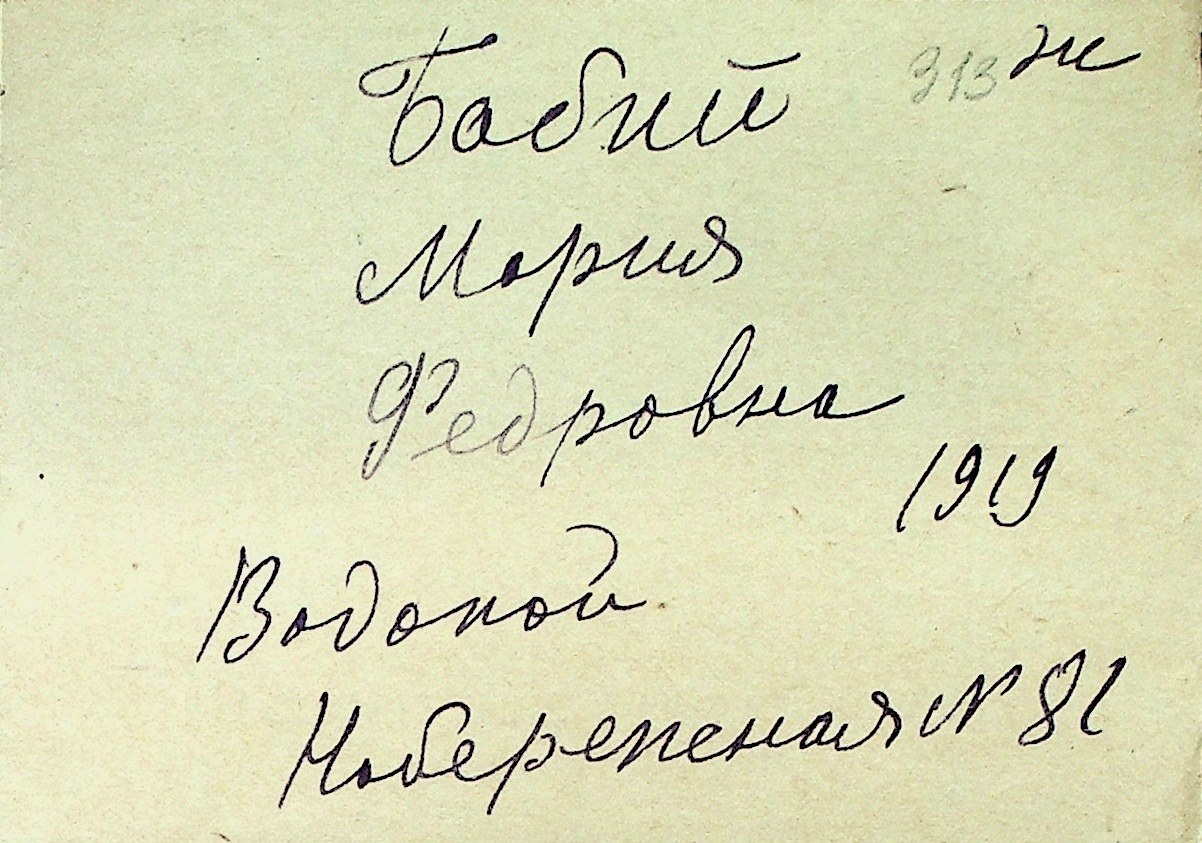 Бабий 313 ж
Мария
Федровна
1919
Водопой
Набережная № 81